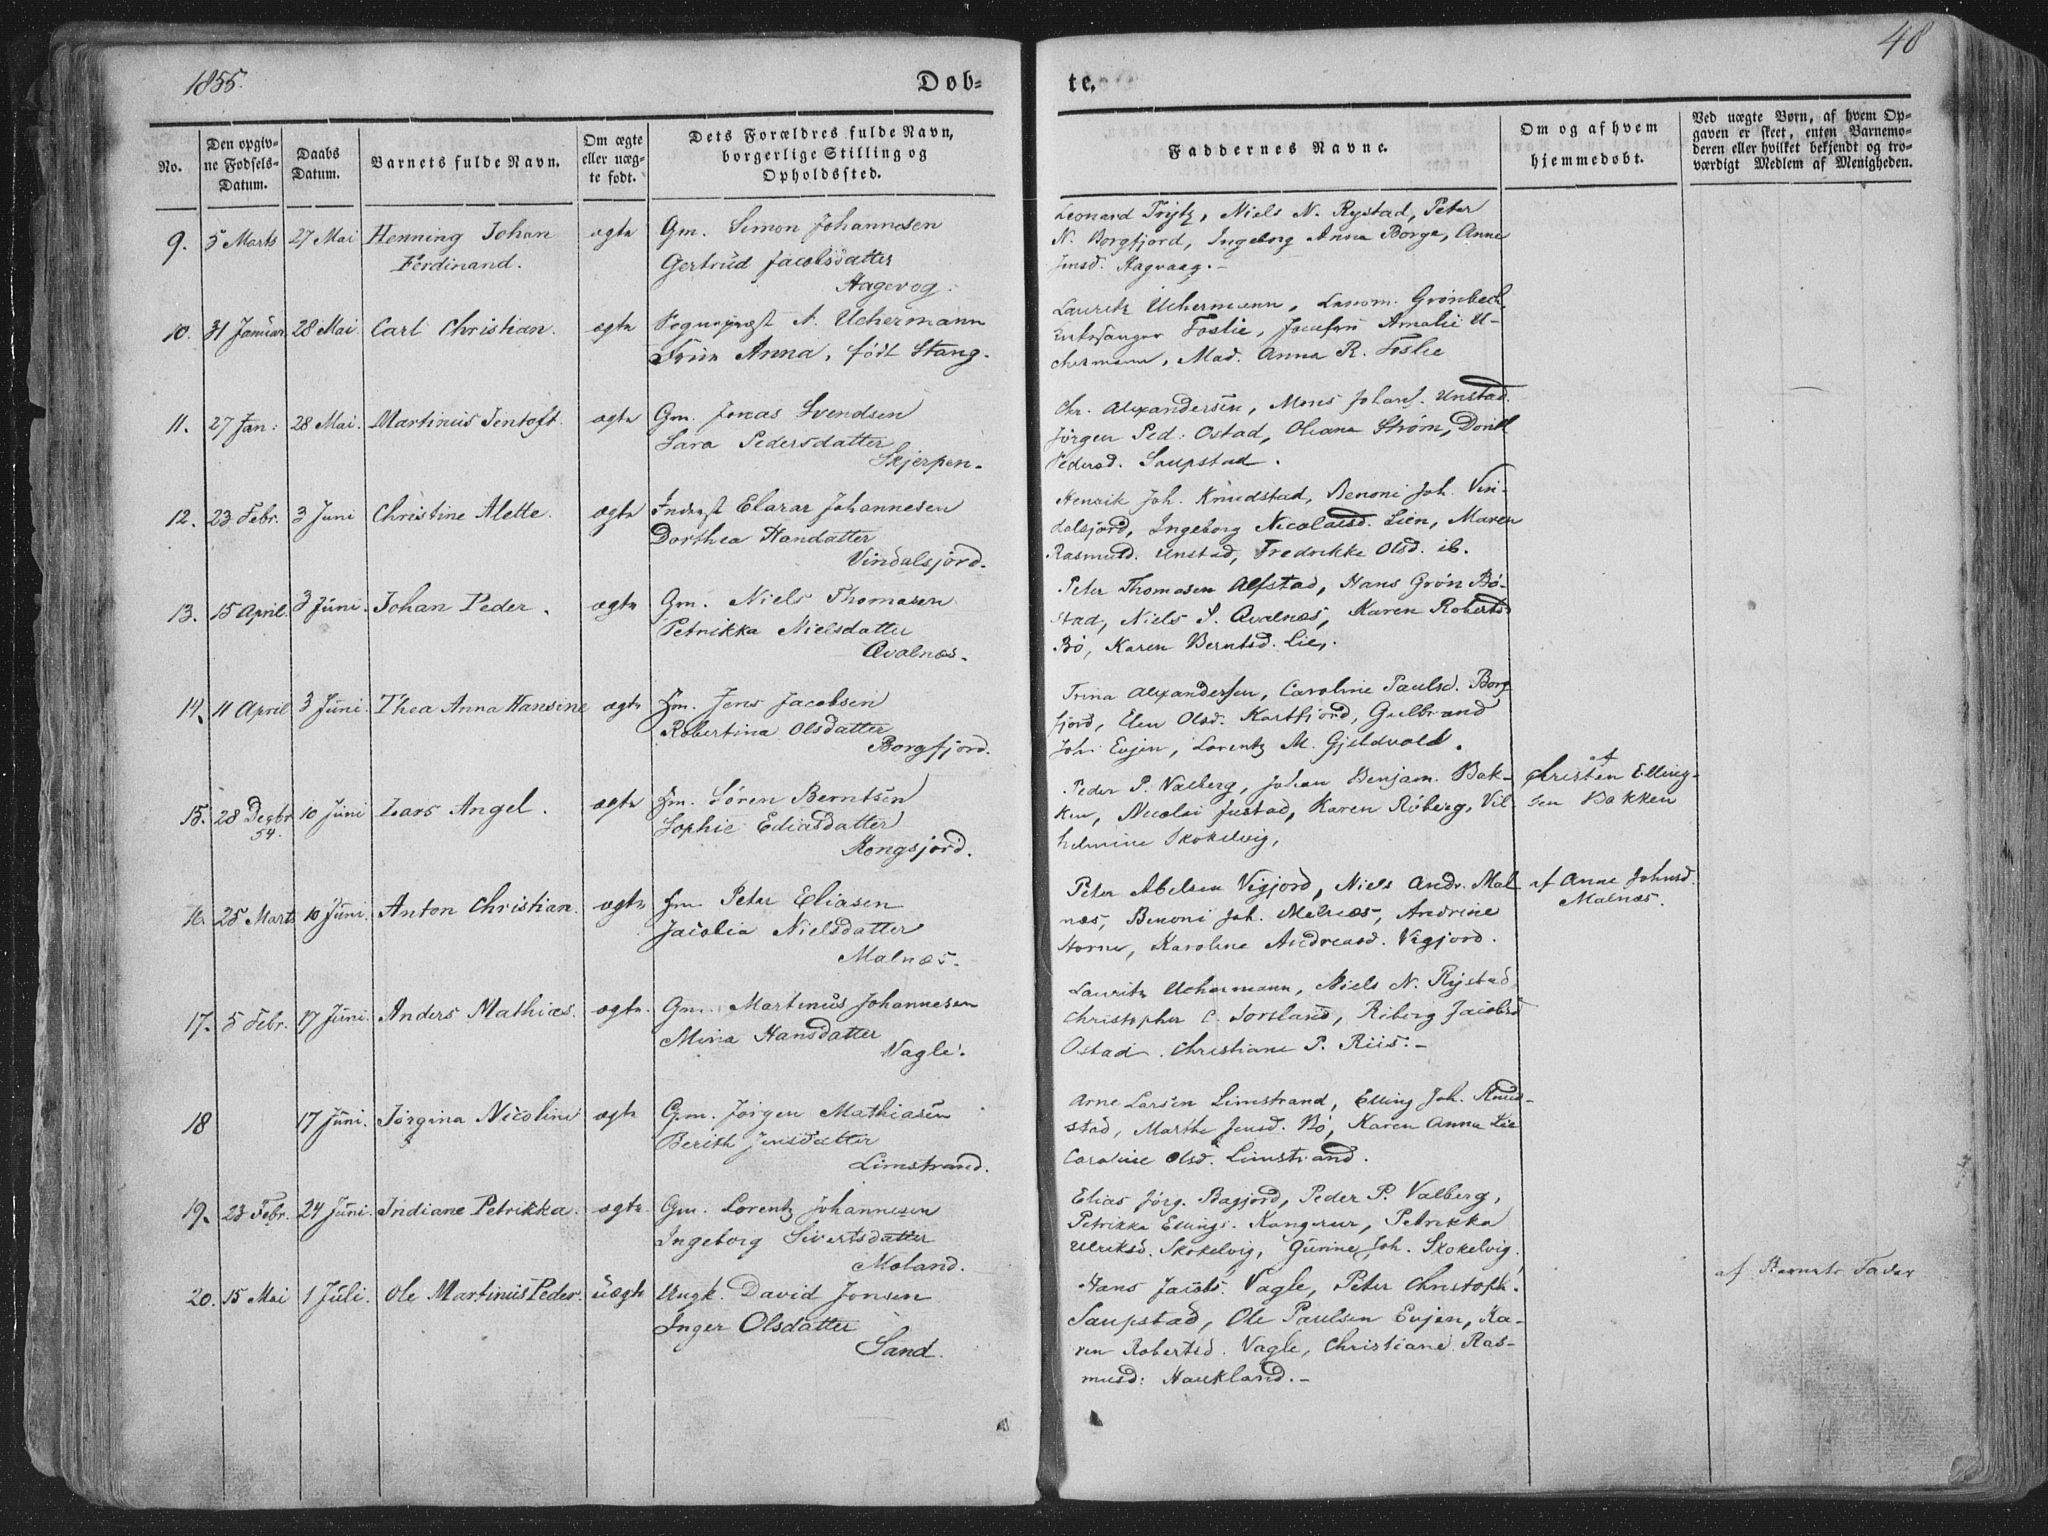 1855.
Døb-
te.
48
No.
Den opgiv-
ne Fødsels-
Datum.
Daabs
Datum.
Barnets fulde Navn.
Om ægte
eller uæg-
te født.
Dets Forældres fulde Navn,
borgerlige Stilling og
Opholdssted.
Faddernes Navne.
Om og af hvem
hjemmedøbt.
Ved uægte Børn, af hvem Op-
gaven er skeet, enten Barnemo-
deren eller hvilket bekjendt og tro-
værdigt Medlem af Menigheden.
9. 5 Marts 27 Mai Henning Johan ægte Gm. Simon Johannesen
Ferdinand. Gertrud Jacobsdatter
Hagevog.
Leonard Trytz, Niels N. Rystad, Peter
N. Borgfjord, Ingeborg Anna Borge, Anne
Jensd. Hagvaag.-
10. 31 Januar 28 Mai. Carl Christian. ægte A. Uchermann
Fru Anna, født Stang.
Lauritz Uchermann, Grønbech
Foslie, Amalie U-
chermann, Mad. Anna R. Foslie
11. 27 Jan: 28 Mai. Martinus Tentoft. ægte Gm. Jonas Svendsen
Sara Pedersdatter
Skjerpen.
Chr. Alexandersen, Mons Johans. Unstad.
Jørgen Ped: Ostad, Oliana Strøm, Dorth
Pedersd. Saupstad.
12. 23 Febr. 3 Juni Christine Alette. ægte Inderst Elarar Johannesen
Dorthea Handatter
Vindalsjord.
Henrik Joh. Knudstad, Benoni Joh. Vin-
dalsjord, Ingeborg Nicolaisd. Lien, Maren
Rasmusd. Unstad, Fredrikke Olsd. ib.
13. 15 April. 3 Juni. Johan Peder. ægte Gm. Niels Thomasen
Petrikka Nielsdatter
Qvalnæs.
Peter Thomasen Alfstad, Hans Grøn Bø-
stad, Niels S. Qvalnæs, Karen Robertsd
Bø, Karen Berntsd. Lie,.
14. 11 April 3 Juni. Thea Anna Hansine ægte Hm. Jens Jacobsen
Robertina Olsdatter
Borgfjord.
Trina Alexandersen, Caroline Paulsd. Borg
fjord, Elen Olsd. Kartfjord, Gulbrand
Joh. Evjen, Lorentz M. Gjeldvold.
15. 28 Decbr 10 Juni Lars Angel. ægte Hm. Søren Berntsen
54. Sophie Eliasdatter
Kongsjord.
Peder P. Valberg, Johan Benjam. Bak-
ken, Nicolai Justad, Karen Røberg, Vil-
helmine Skokelvig,
af
Christen Elling-
sen Bakken
16. 25 Marts 10 Juni. Anton Christian. ægte Hm Peter Eliasen
Jacobia Nielsdatter
Malnæs.
Peter Abelsen Vigjord, Niels Andr. Mal
næs, Benoni Joh. Malnæs, Andrine
Horne, Karoline Andreasd. Vigjord.
af Anne Johnsd.
Malnæs.
17. 5 Febr. 17 Juni. Anders Mathias. ægte. Gm. Martinus Johannesen
Mina Hansdatter
Vagle.
Lauritz Uchermann, Niels N. Rystad
Christopher C. Torsland, Riborg Jacobsd
Ostad. Christiane P. Riis.-
18 17 Juni. Jørgina Nicoline ægte Gm. Jørgen Mathiasen
Berith Jensdatter
Limstrand.
Arne Larsen Limstrand, Elling Joh. Knud-
stad, Marthe Jensd. Bø, Karen Anna Lie
Caroline Olsd. Limstrand.
19. 23 Febr. 24 Juni. Indiane Petrikka. ægte. Gm. Lorentz Johannesen
Ingeborg Sivertsdatter
Moland.
Elias Jørg. Bagjord, Peder P. Valberg,
Petrikka Ellings. Kangerur, Petrikka
Ulriksd. Skokelvig, Gurine Joh. Skokelvig.
20. 15 Mai 1 Juli. Ole Martinus Peder. uægte Ungk. David Jonsen
Inger Olsdatter
Sand.
Hans Jacobs. Vagle, Peter Christoph.
Saupstad, Ole Paulsen Evjen, Ka-
ren Robertsd. Vagle, Christiane Ras-
musd: Haukland.-
af Barnets Fader